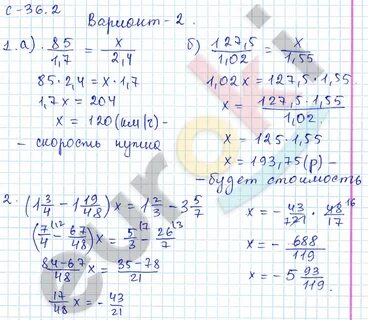 С-36.2
Вариант-2.
1. а) 85/1,7 = x/2,4
85·2,4 = x·1,7
1,7x = 204
x = 120 (км/ч)-
- скорость
б) 127,5/1,02 = x/1,55
1,02x = 127,5·1,55
x = 127,5·1,55/1,02
x = 125·1,55
x = 193,75(р)-
- будет стоимость
2. (1 3/4 - 1 19/48) x = 1 2/3 - 3 5/7
(7/4 \12 - 67/48) x = 5/3 \7 - 26/7 \3
84-67/48 x = 35-78/21
17/48 x = - 43/21
x = - 43/21 · 48 16/17
x = - 688/119
x = -5 93/119
euroki